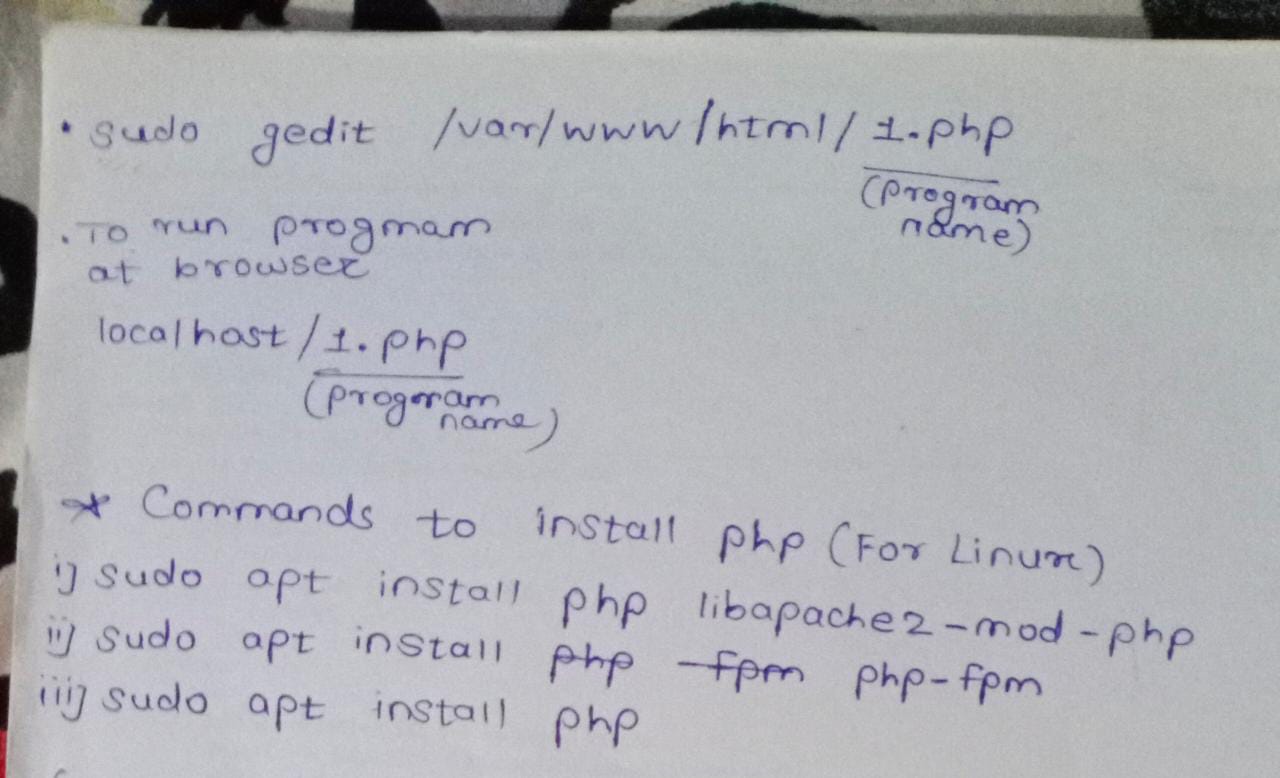 • sudo gedit /var/www/html/1.php
(program
name)
. To run program
at browser
localhost/1.php
(program
name)
* Commands to install php (For Linux)
i] sudo apt install php libapache2-mod-php
ii] sudo apt install php -fpm php-fpm
iii] sudo apt install php